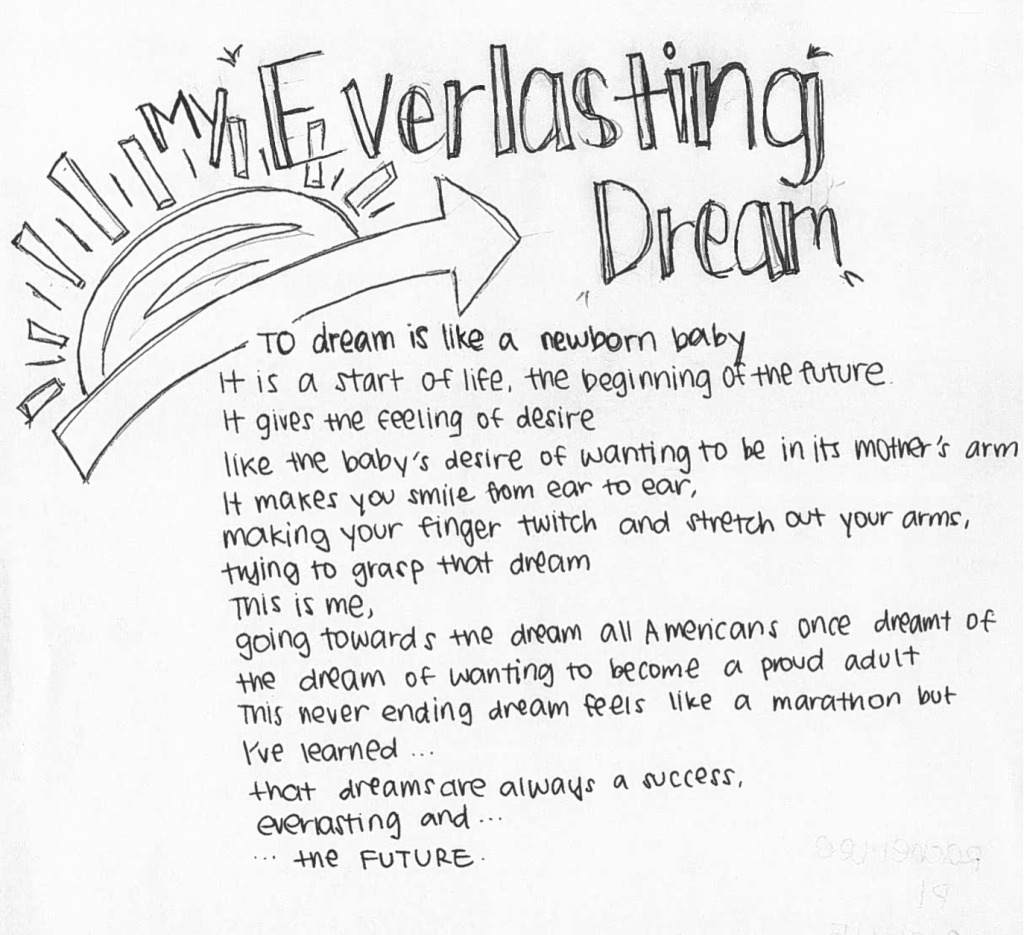 My Everlasting
Dream
To dream is like a newborn baby
It is a start of life, the beginning of the future.
It gives the feeling of desire
like the baby's desire of wanting to be in its mother's arm
It makes you smile from ear to ear,
making your finger twitch and stretch out your arms,
trying to grasp that dream
This is me,
going towards the dream all Americans once dreamt of
the dream of wanting to become a proud adult
This never ending dream feels like a marathon but
I've learned ...
that dreams are always a success,
everlasting and ...
... the FUTURE.